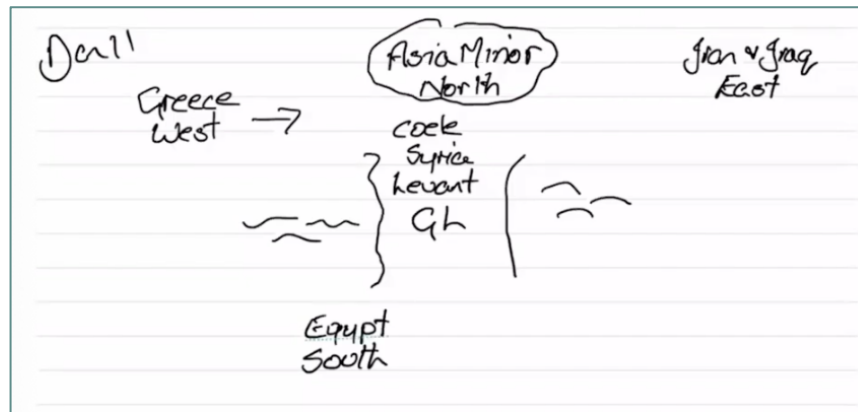 Dan 11
Asia Minor
North
Iran & Iraq
East
Greece
West
Coele
Syria
Levant
GL
Egypt
South